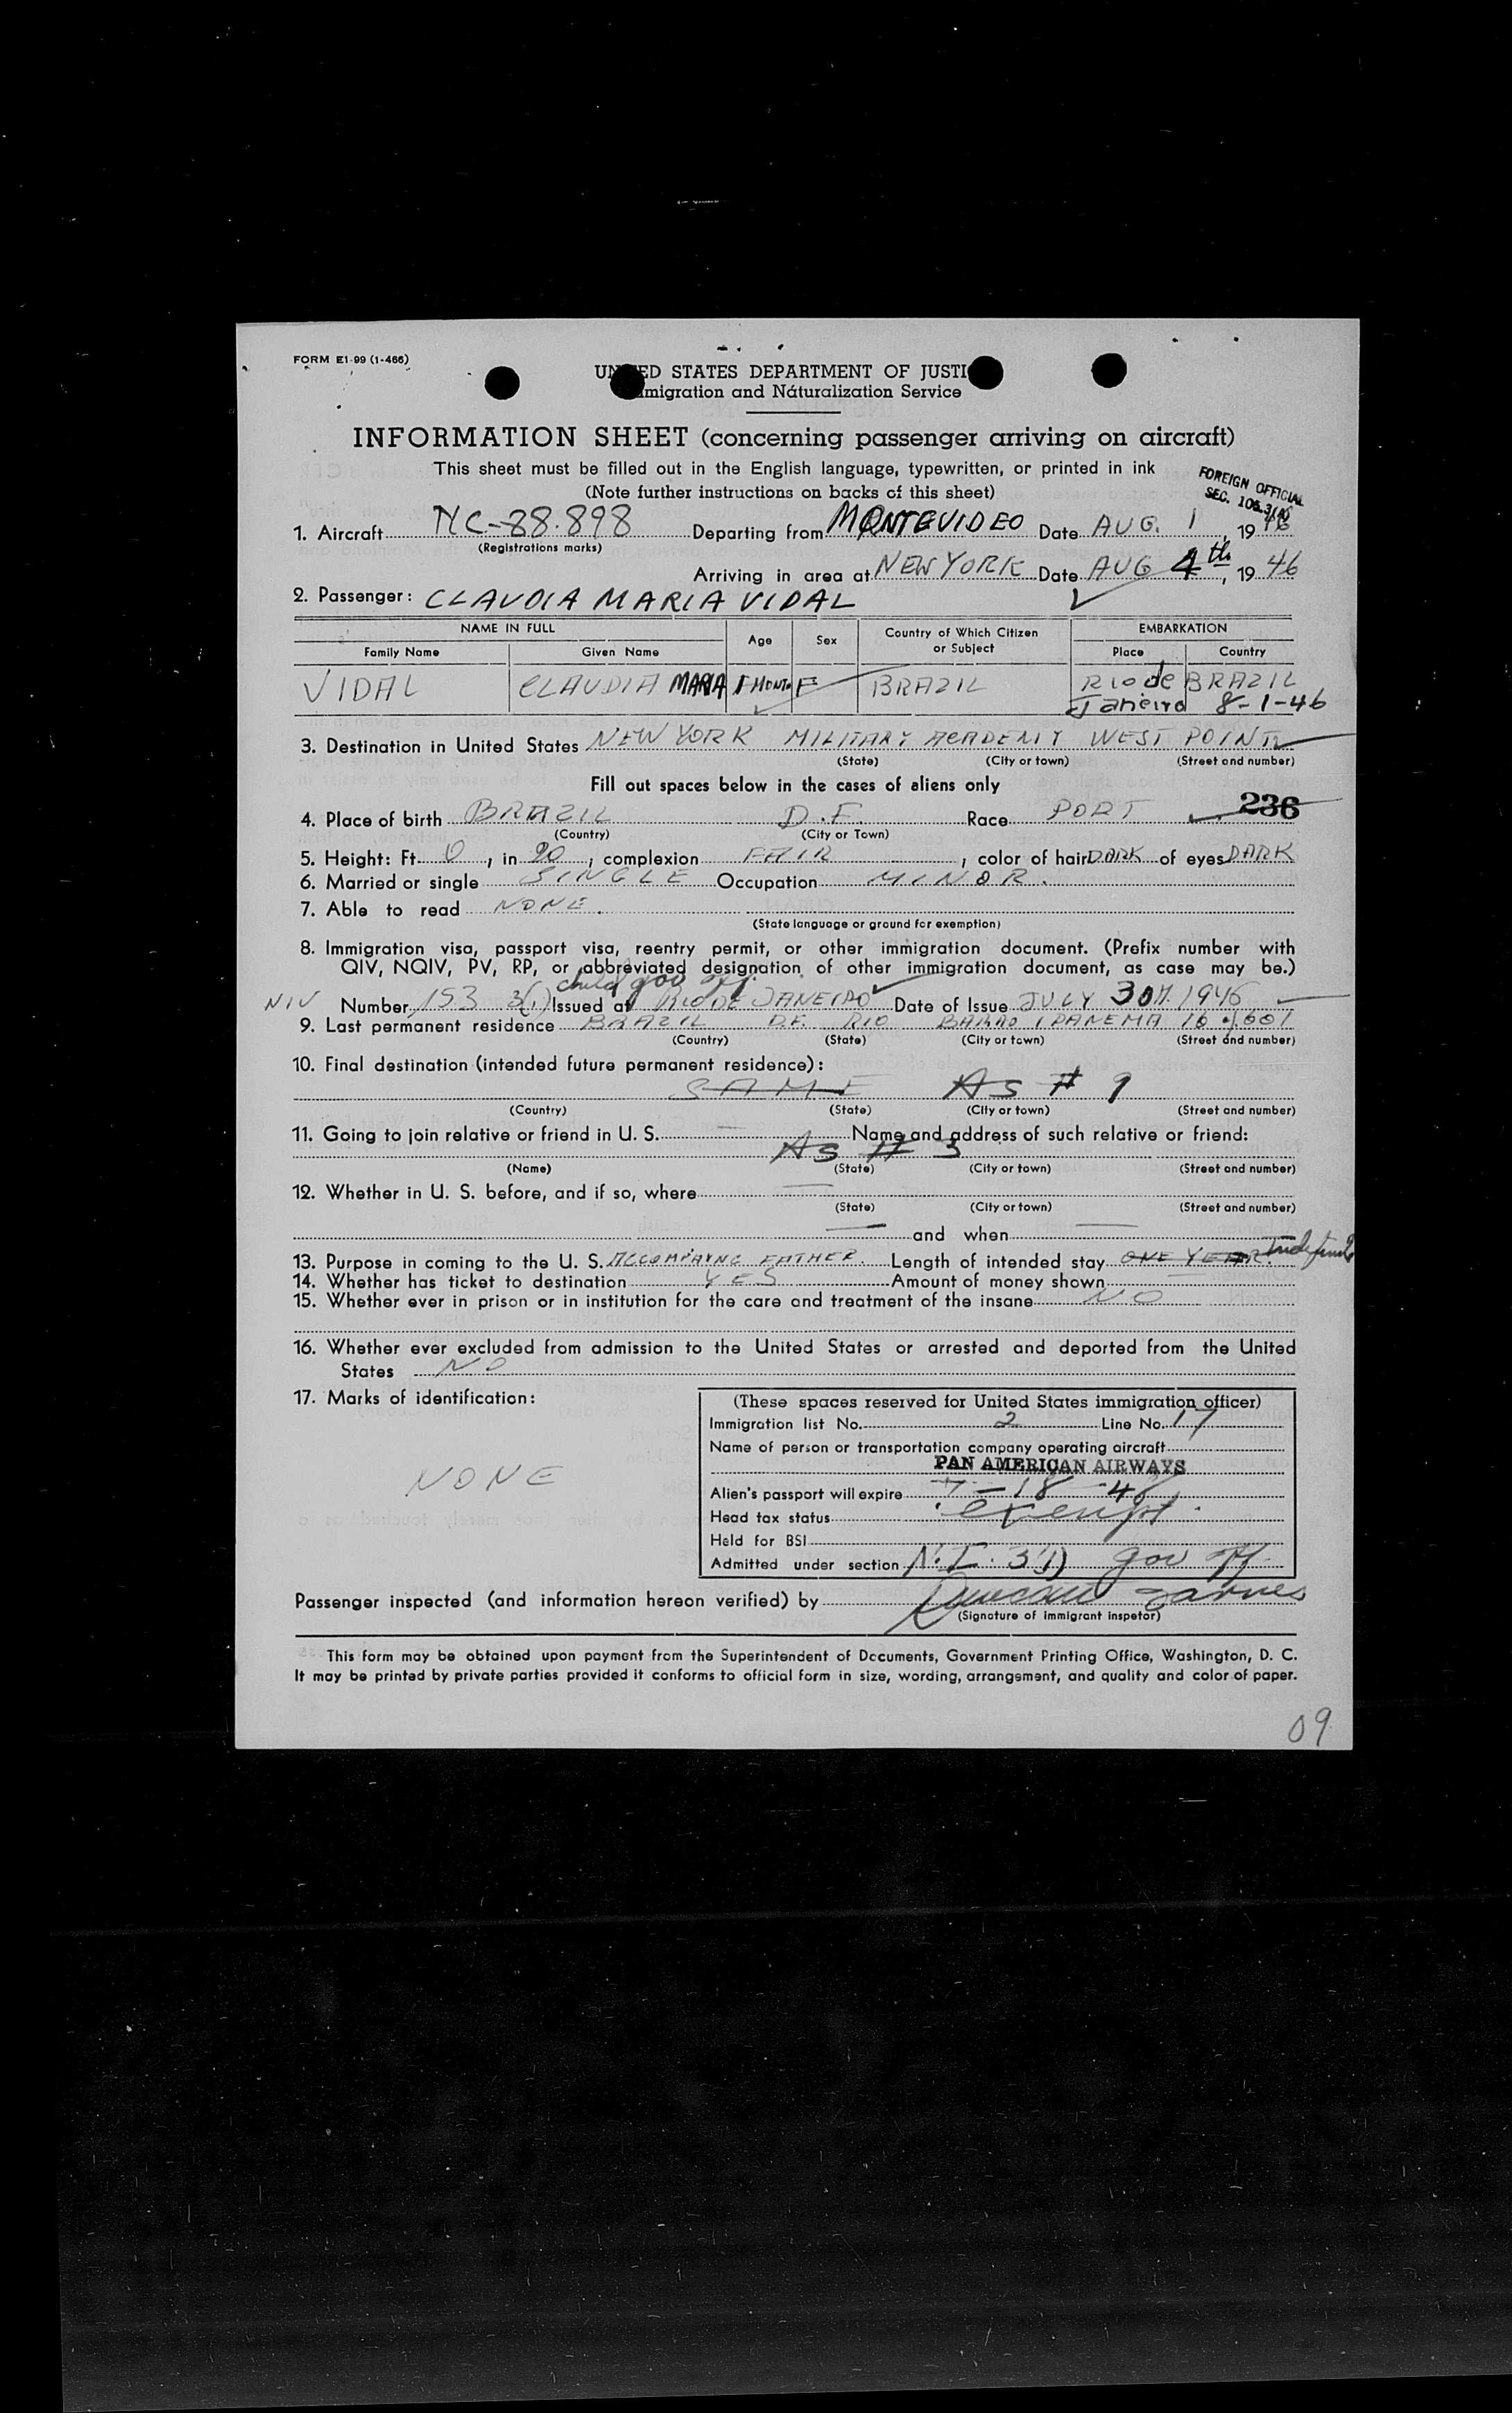 FORM E1-99 (1-466)
UNITED STATES DEPARTMENT OF JUSTI
migration and Naturalization Service
INFORMATION SHEET (concerning passenger arriving on aircraft)
This sheet must be filled out in the English language, typewritten, or printed in ink
(Note further instructions on backs of this sheet)
FOREIGN OFFICIAL
SEC. 105.3(A)
1. Aircraft NC-88.898 Departing from MONTEVIDEO Date AUG. 1, 1946
(Registrations marks)
Arriving in area at NEW YORK Date AUG 4th, 1946
2. Passenger: CLAUDIA MARIA VIDAL
NAME IN FULL Age Sex Country of Which Citizen or Subject EMBARKATION
Family Name Given Name Place Country
VIDAL CLAUDIA MARIA MONT. F BRAZIL Rio de BRAZIL
Janeiro 8-1-46
3. Destination in United States NEW YORK MILITARY ACADEMY WEST POINT
(State) (City or town) (Street and number)
Fill out spaces below in the cases of aliens only
4. Place of birth BRAZIL D.F. Race PORT 236
(Country) (City or Town)
5. Height: Ft. 0, in 20, complexion FAIR, color of hair DARK of eyes DARK
6. Married or single SINGLE Occupation MINOR.
7. Able to read NONE.
(State language or ground for exemption)
8. Immigration visa, passport visa, reentry permit, or other immigration document. (Prefix number with
QIV, NQIV, PV, RP, or abbreviated designation of other immigration document, as case may be.)
child gov off.
NIV Number 153 3(1) Issued at RIO DE JANEIRO Date of Issue JULY 30 1946
9. Last permanent residence BRAZIL D.F. RIO BARÃO IPANEMA 16 601
(Country) (State) (City or town) (Street and number)
10. Final destination (intended future permanent residence):
SAME As # 9
(Country) (State) (City or town) (Street and number)
11. Going to join relative or friend in U. S. — Name and address of such relative or friend:
As # 3
(Name) (State) (City or town) (Street and number)
12. Whether in U. S. before, and if so, where —
(State) (City or town) (Street and number)
— and when —
13. Purpose in coming to the U. S. ACCOMPAYNG FATHER. Length of intended stay ONE YEAR. Indefinite
14. Whether has ticket to destination YES Amount of money shown —
15. Whether ever in prison or in institution for the care and treatment of the insane NO
16. Whether ever excluded from admission to the United States or arrested and deported from the United
States NO
17. Marks of identification:
NONE
(These spaces reserved for United States immigration officer)
Immigration list No. 2 Line No. 17
Name of person or transportation company operating aircraft
PAN AMERICAN AIRWAYS
Alien's passport will expire 7-18-48
Head tax status exempt
Held for BSI
Admitted under section 3(1) gov off.
Passenger inspected (and information hereon verified) by
(Signature of immigrant inspetor)
This form may be obtained upon payment from the Superintendent of Documents, Government Printing Office, Washington, D. C.
It may be printed by private parties provided it conforms to official form in size, wording, arrangement, and quality and color of paper.
09